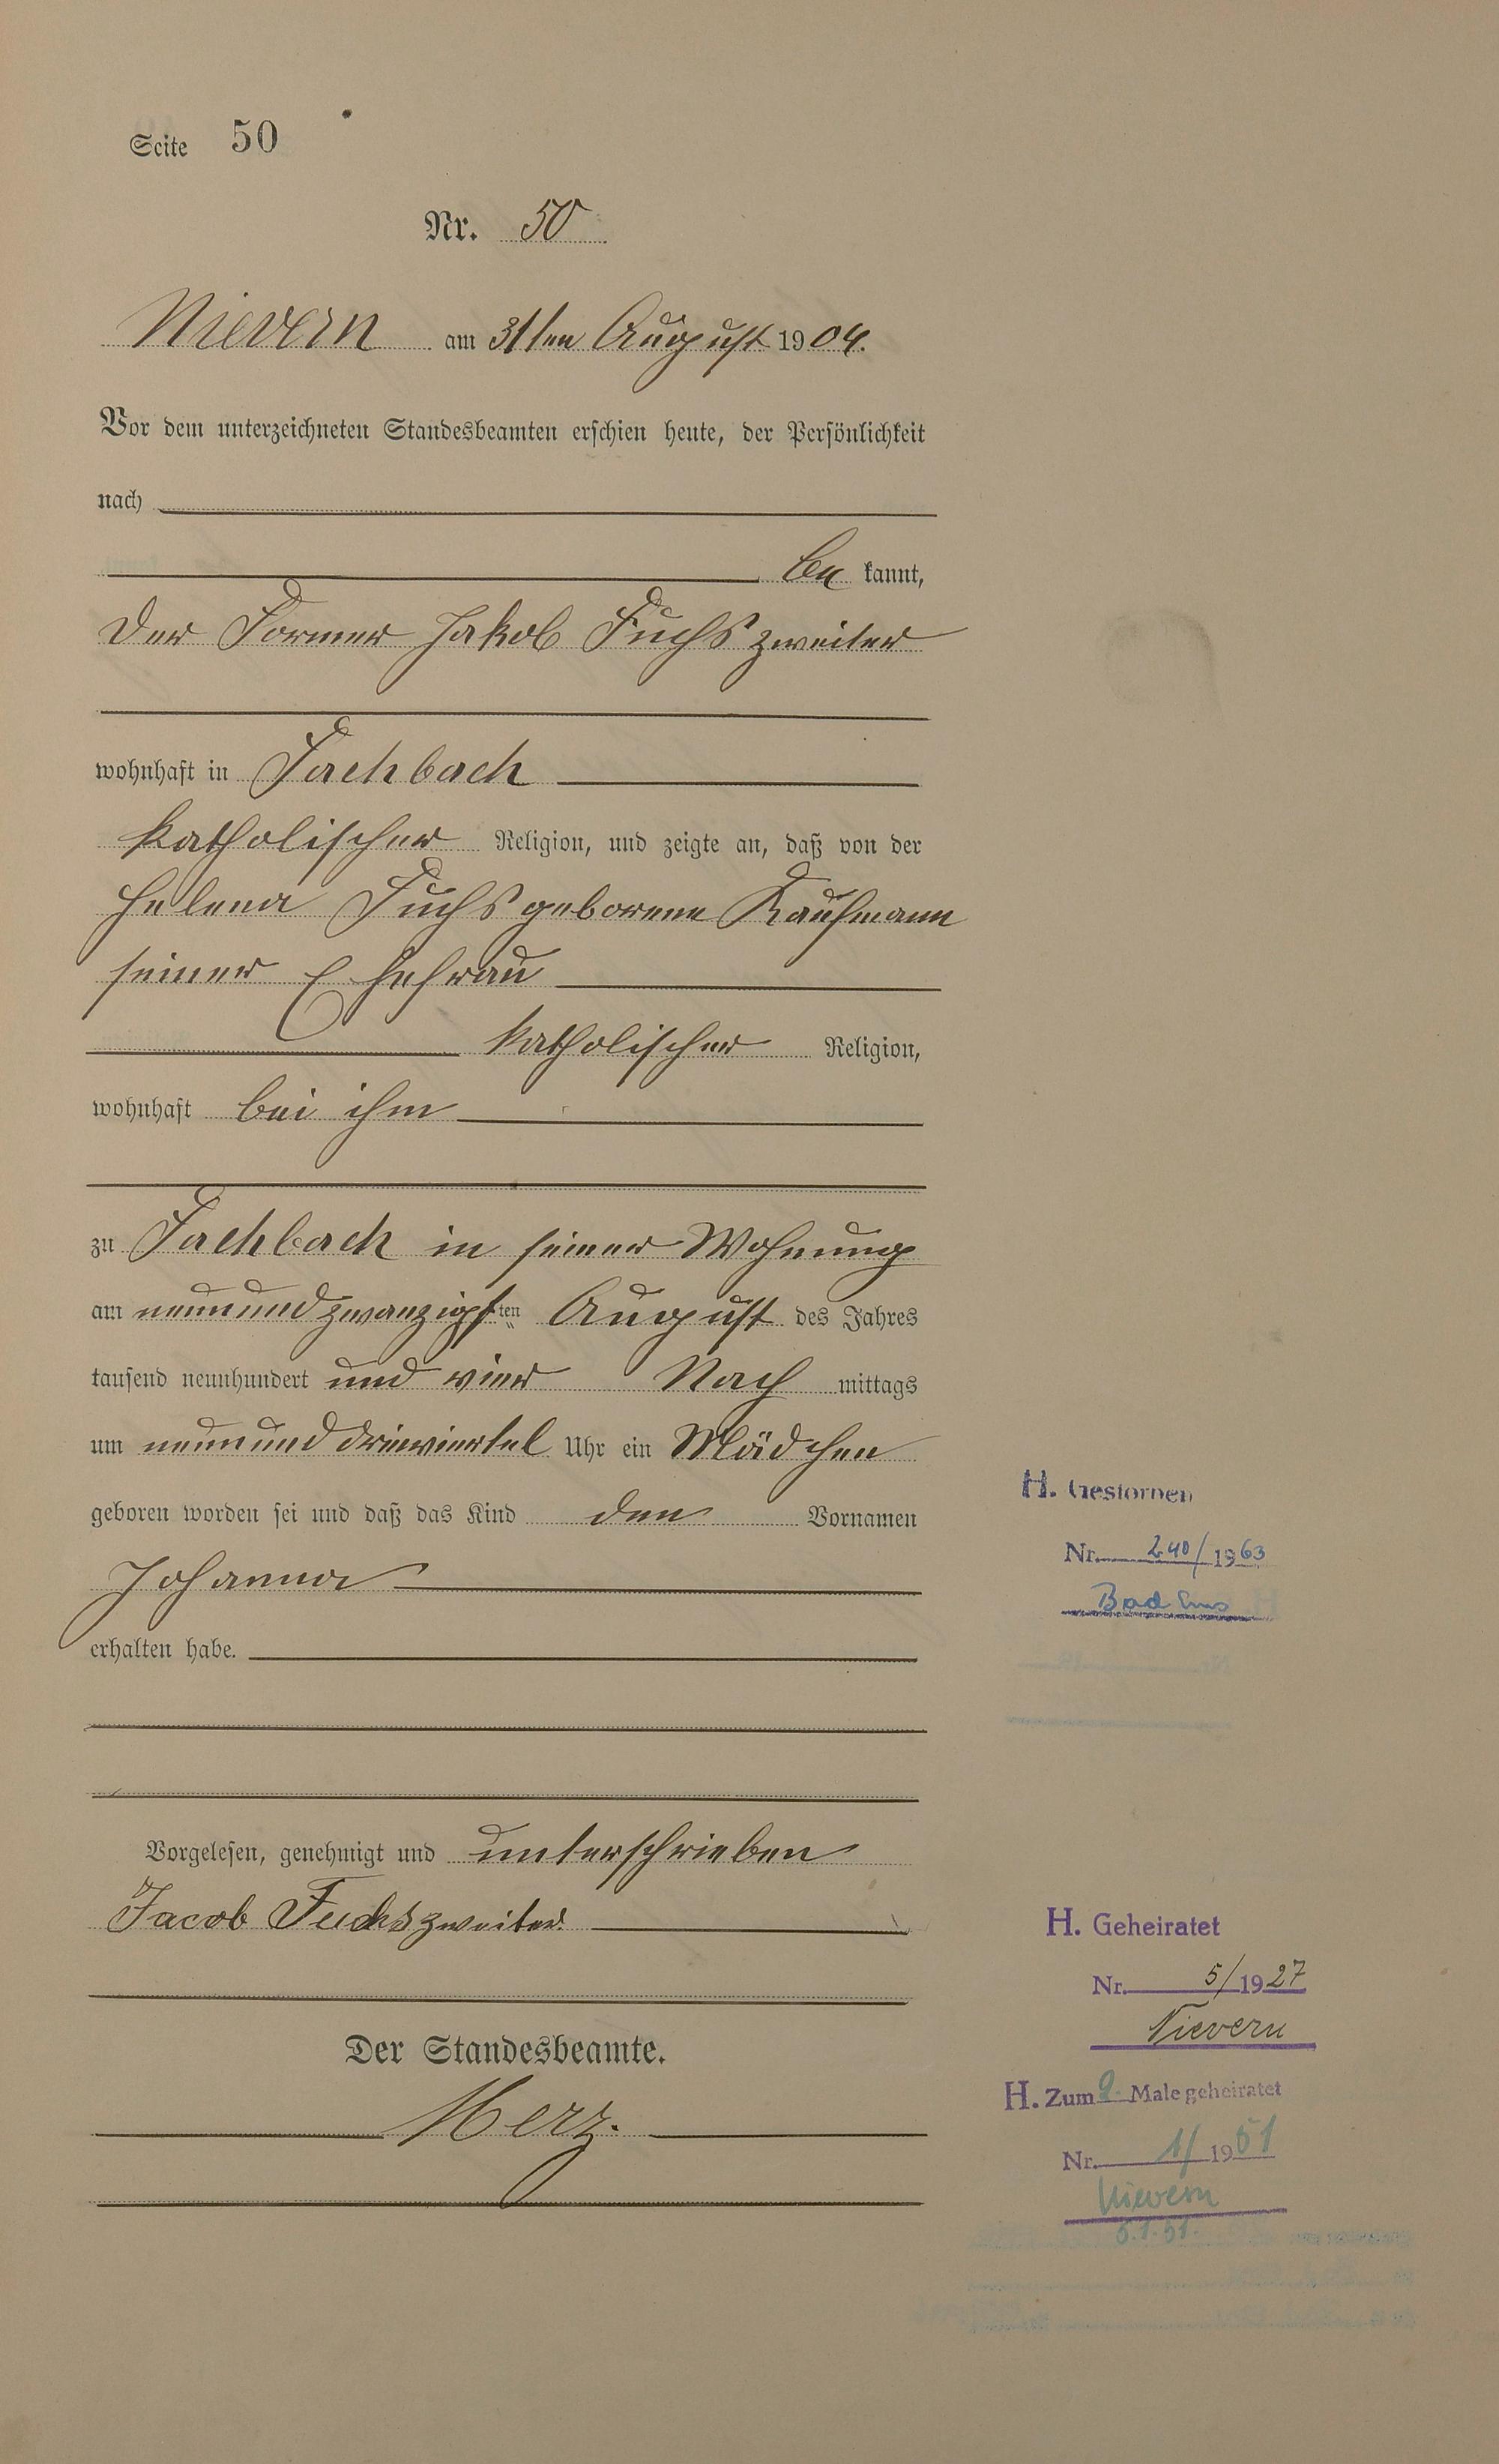 Seite 50
Nr. 50
Nievern am 31ten August 1904.
Vor dem unterzeichneten Standesbeamten erschien heute, der Persönlichkeit
nach
be kannt,
der Former Jakob Fuchs zweiter
wohnhaft in Fachbach
katholischer Religion, und zeigte an, daß von der
Helena Fuchs geborene Kaufmann
seiner Ehefrau
katholischer Religion,
wohnhaft bei ihm
zu Fachbach in seiner Wohnung
am neunundzwanzigsten August des Jahres
tausend neunhundert und vier Nach mittags
um neununddreiviertel Uhr ein Mädchen
geboren worden sei und daß das Kind den Vornamen
Johanna
erhalten habe.
Vorgelesen, genehmigt und unterschrieben
Jacob Fuchs zweiter.
Der Standesbeamte.
Merz.
H. Gestorben
Nr. 240/1963
Bad Ems
H. Geheiratet
Nr. 5/1927
Nievern
H. Zum 2. Male geheiratet
Nr. 1/1951
Nievern
5.1.51.